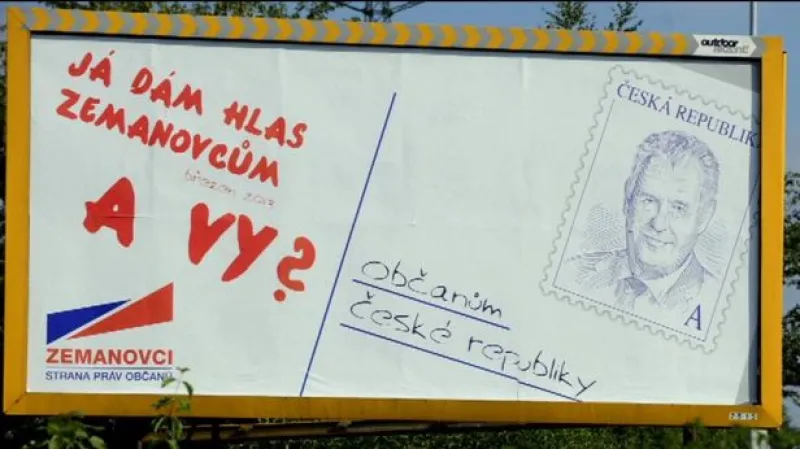 JÁ DÁM HLAS
ZEMANOVCŮM
březen 2013
A VY?
ZEMANOVCI
STRANA PRÁV OBČANŮ
občanům
České republiky
ČESKÁ REPUBLIK
A
outdoor